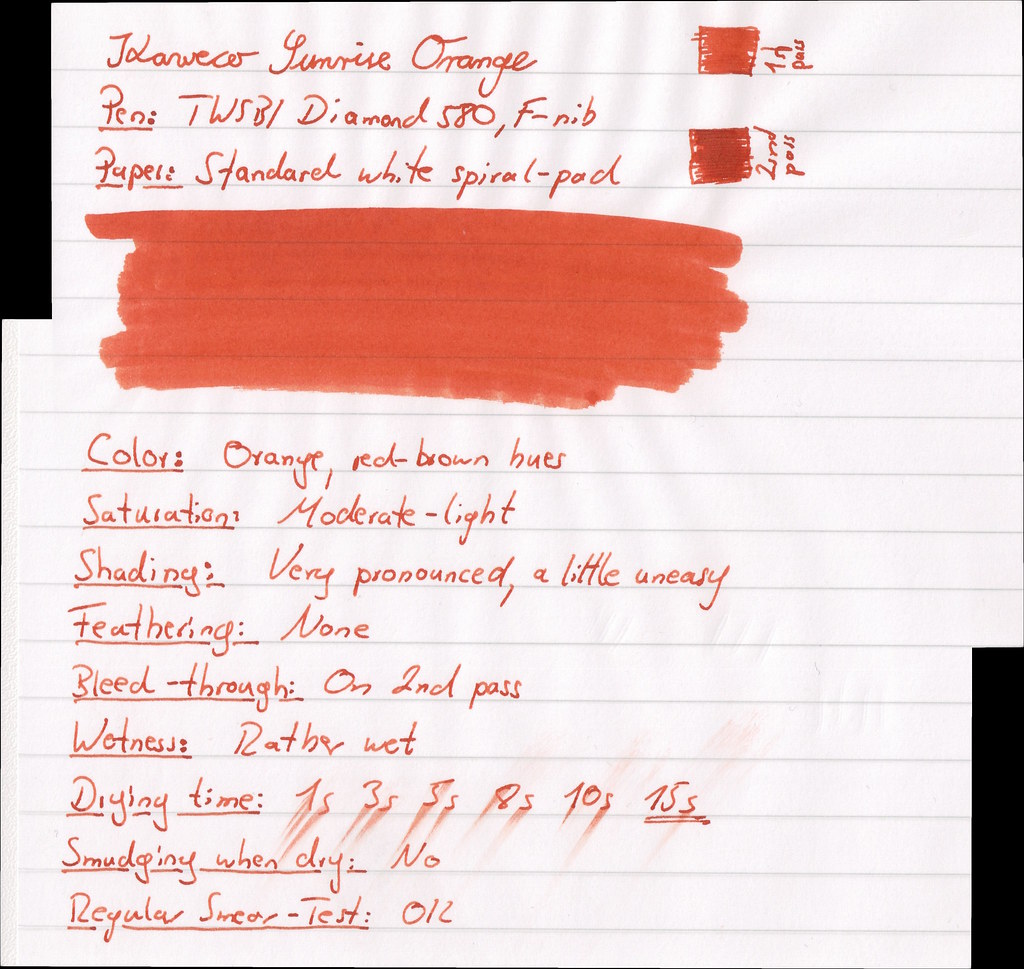 Kaweco Sunrise Orange
1st pass
Pen: TWSBI Diamond 580, F-nib
2nd pass
Paper: Standard white spiral-pad
Color: Orange, red-brown hues
Saturation: Moderate-light
Shading: Very pronounced, a little uneasy
Feathering: None
Bleed-through: On 2nd pass
Wetness: Rather wet
Drying time: 1s 3s 5s 8s 10s 15s
Smudging when dry: No
Regular Smear-Test: OK